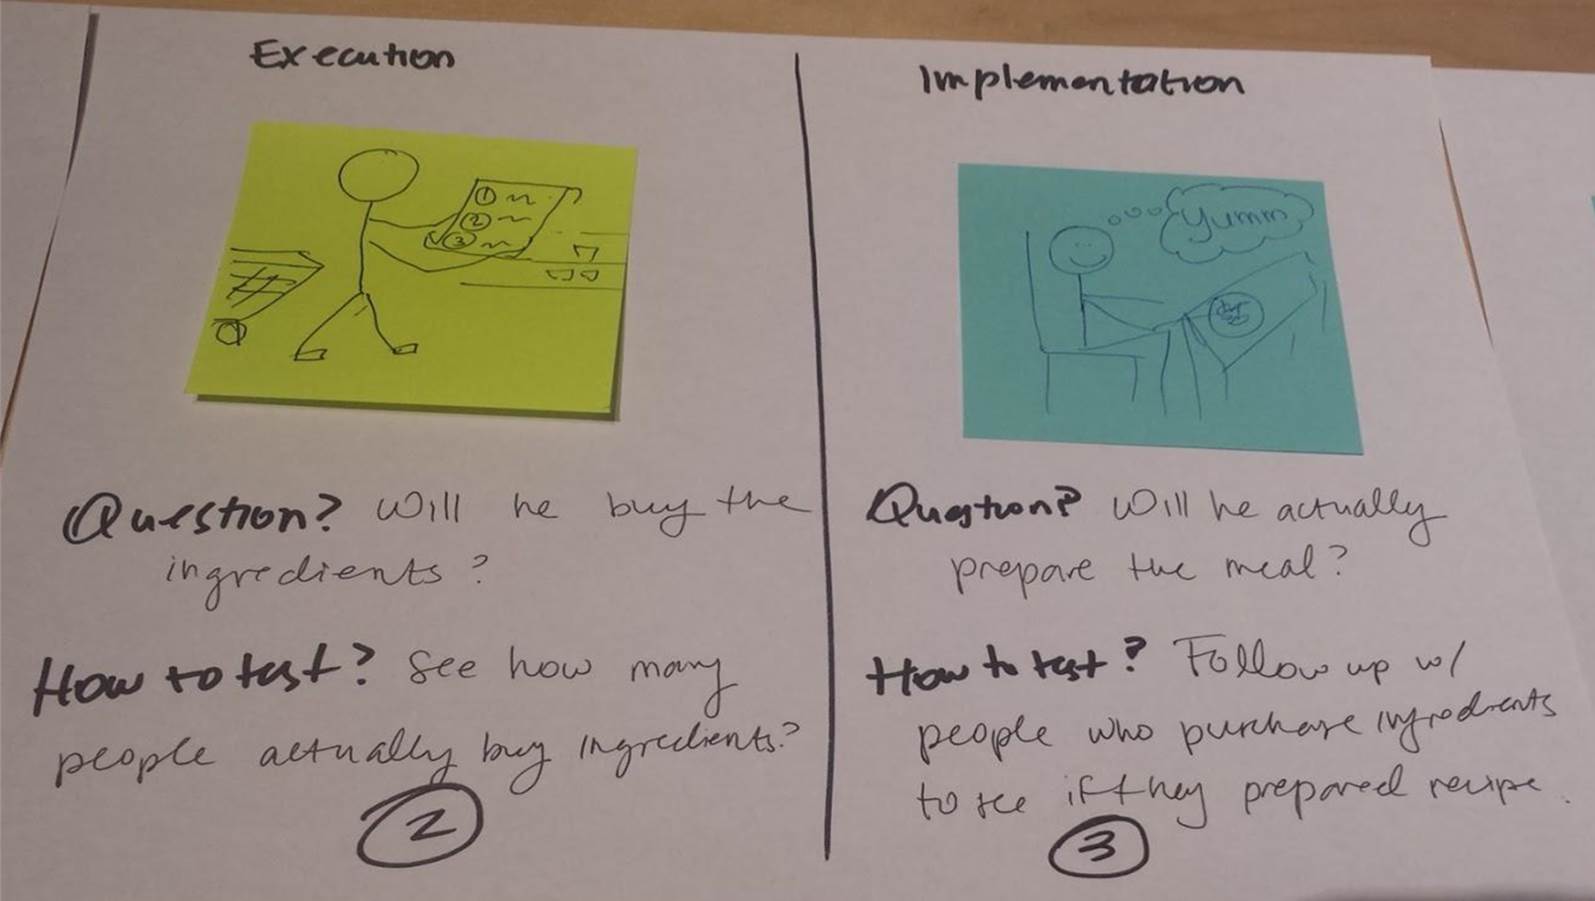 Execution
① ~
② ~
③ ~
Question? Will he buy the
ingredients?
How to test? See how many
people actually buy ingredients?
2
Implementation
Yumm
Question? Will he actually
prepare the meal?
How to test? Follow up w/
people who purchase ingredients
to see if they prepared recipe.
3